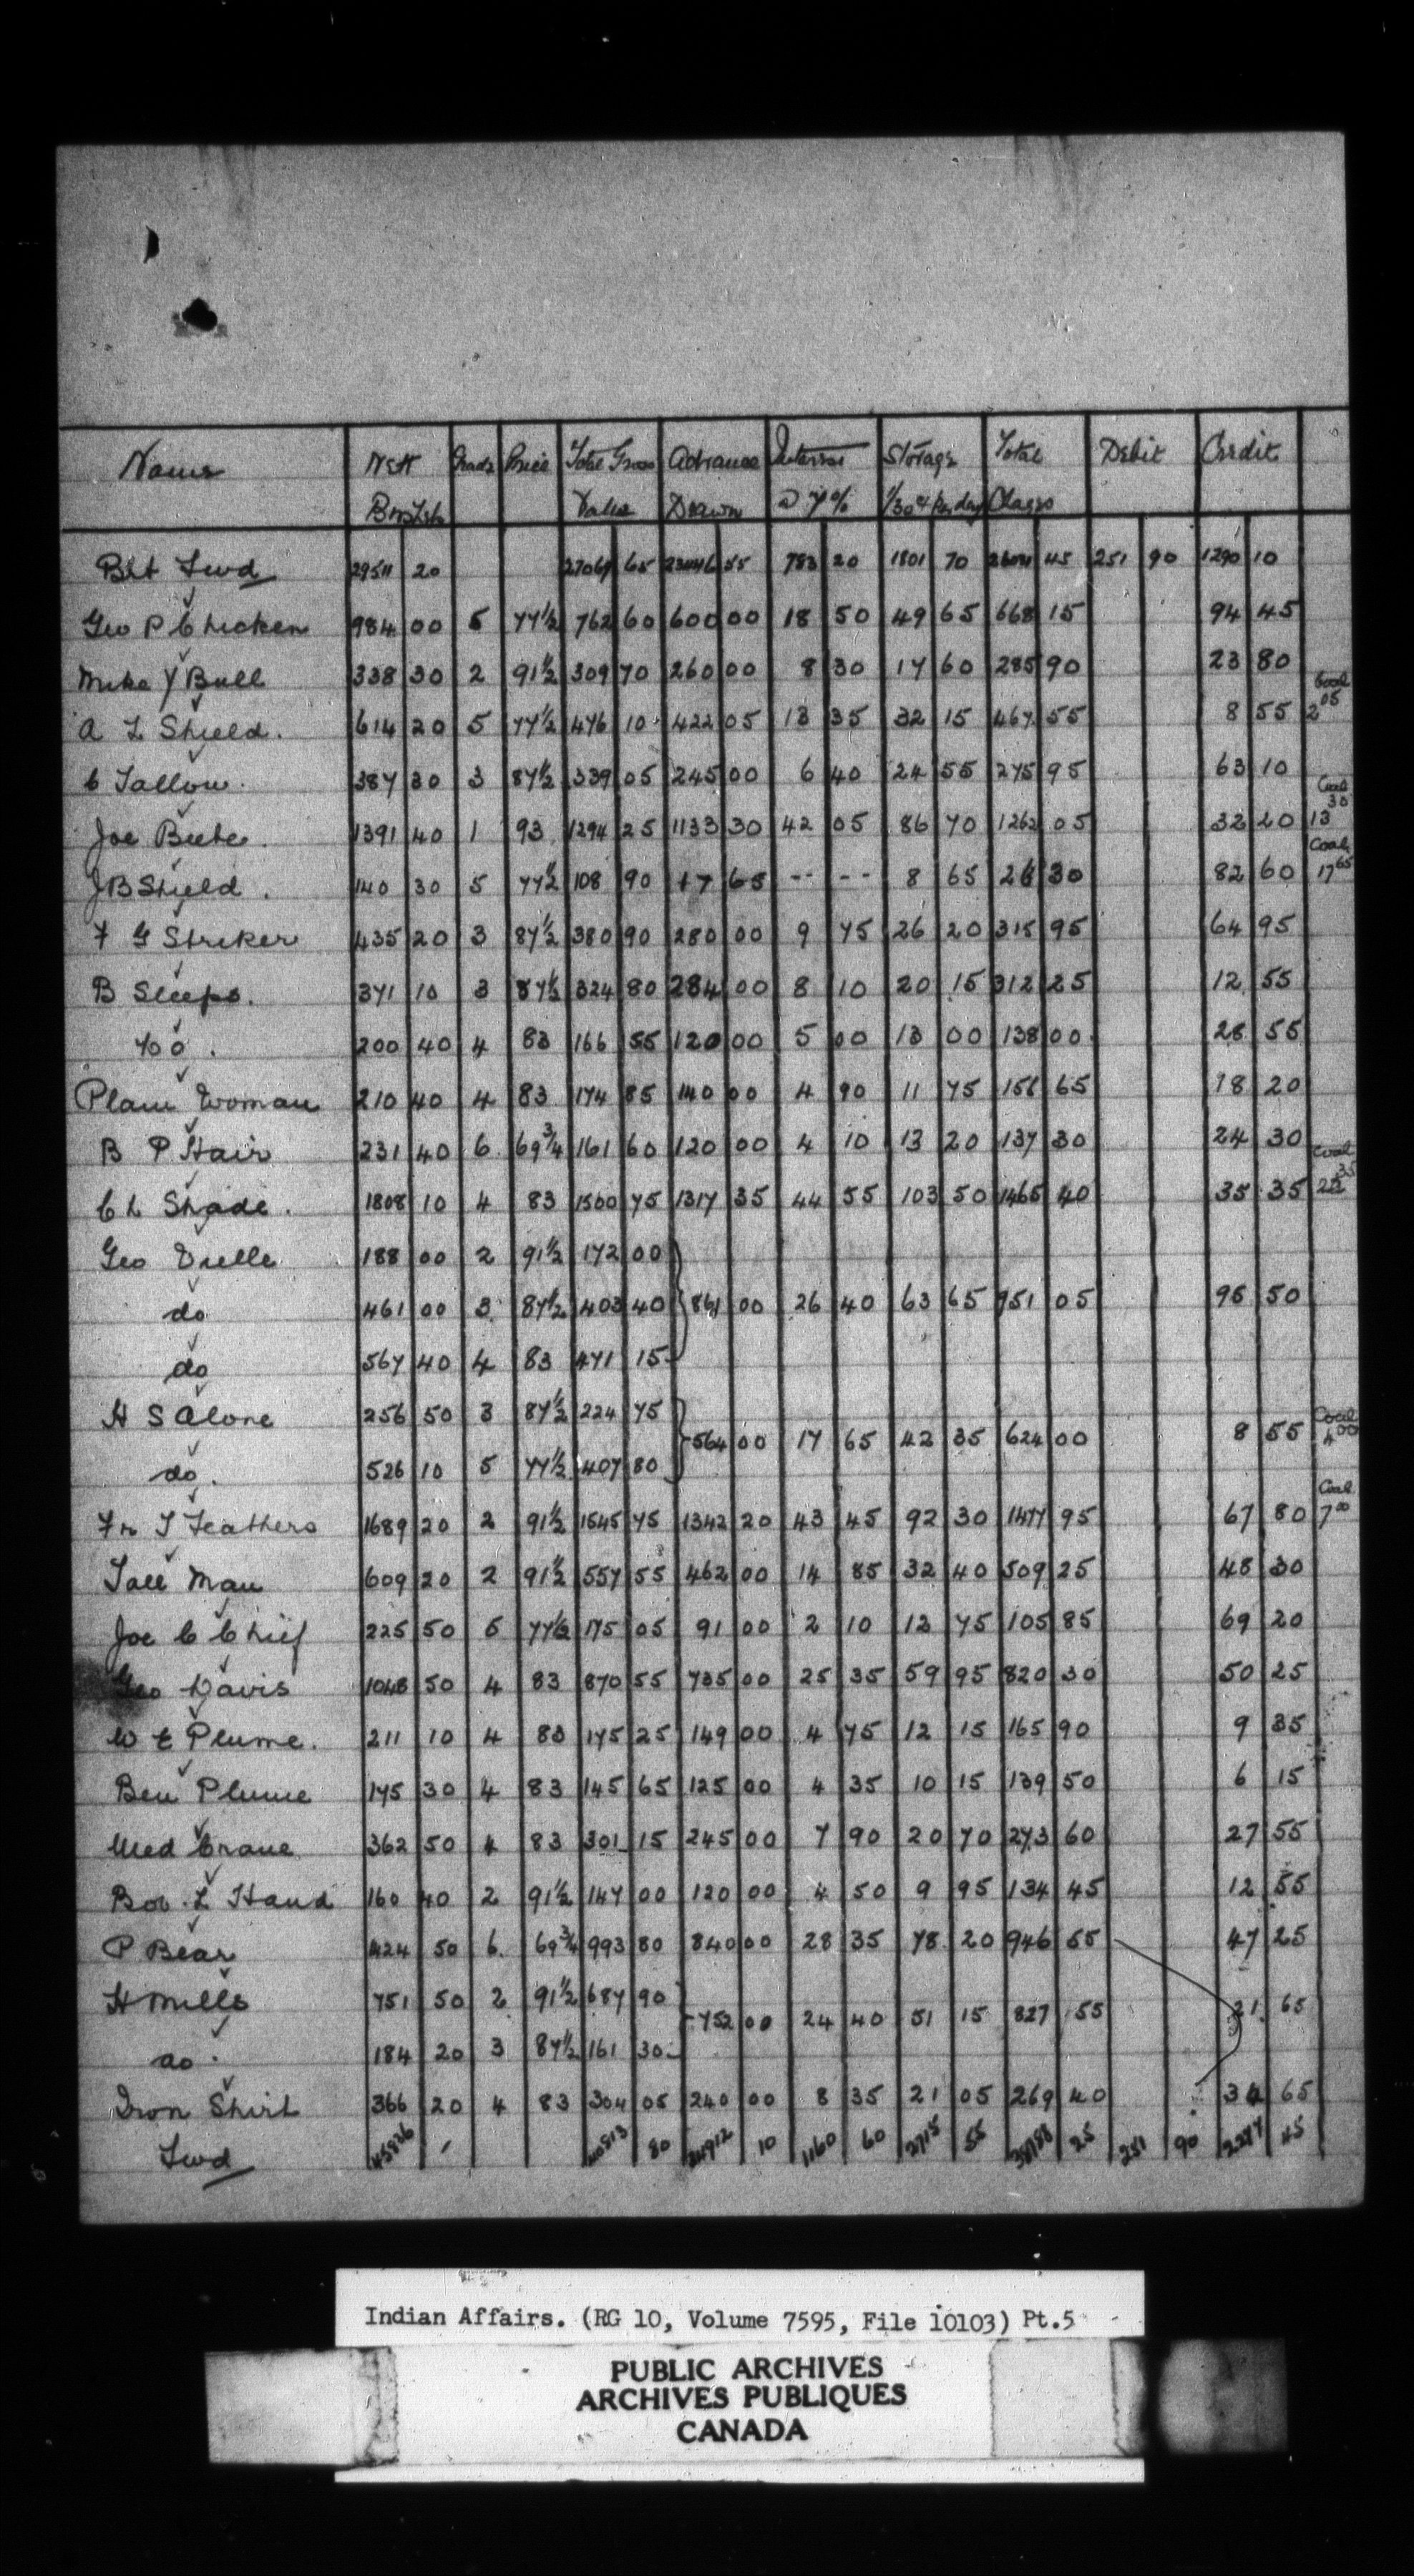 Name Nett Grade Price Total Gross Advance Interest Storage Total Debit Credit
Bus Lbs Value Drawn @ 7% 1/30 ¢ Per day Chages
Brt Fwd 29511 20 27069 65 23446 55 783 20 1801 70 45 251 90 1290 10
Geo P Chicken 984 00 5 77½ 762 60 600 00 18 50 49 65 668 15 94 45
Mike Y Bull 338 30 2 91½ 309 70 260 00 8 30 17 60 285 90 23 80
A L Shield. 614 20 5 77½ 476 10 422 05 13 35 32 15 467 55 8 55 Coal 2 05
C Tallow. 387 30 3 87½ 339 05 245 00 6 40 24 55 275 95 63 10
Joe Beebe. 1391 40 1 93 1294 25 1133 30 42 05 86 70 1262 05 32 20 Coal 13 30
J B Shield. 140 30 5 77½ 108 90 17 65 -- -- 8 65 26 30 82 60 Coal 17 65
F G Striker 435 20 3 87½ 380 90 280 00 9 75 26 20 315 95 64 95
B Sleeps. 371 10 3 87½ 324 80 284 00 8 10 20 15 312 25 12 55
do. 200 40 4 83 166 55 120 00 5 00 13 00 138 00 28 55
Plain Woman 210 40 4 83 174 85 140 00 4 90 11 75 156 65 18 20
B P Hair 231 40 6 69¾ 161 60 120 00 4 10 13 20 137 30 24 30
C L Shade. 1808 10 4 83 1500 75 1317 35 44 55 103 50 1465 40 35 35 Coal 22 35
Geo Vielle 188 00 2 91½ 172 00
do 461 00 3 87½ 403 40 861 00 26 40 63 65 951 05 95 50
do 567 40 4 83 471 15
H S Alone 256 50 3 87½ 224 75
564 00 17 65 42 35 624 00 8 55 Coal 4 00
do. 526 10 5 77½ 407 80
Fr T Feathers 1689 20 2 91½ 1545 75 1342 20 43 45 92 30 1477 95 67 80 Coal 7 00
Tall Man 609 20 2 91½ 557 55 462 00 14 85 32 40 509 25 48 30
Joe C Chief 225 50 5 77½ 175 05 91 00 2 10 12 75 105 85 69 20
Geo Davis 1048 50 4 83 870 55 735 00 25 35 59 95 820 30 50 25
W E Plume. 211 10 4 83 175 25 149 00 4 75 12 15 165 90 9 35
Ben Plume 175 30 4 83 145 65 125 00 4 35 10 15 139 50 6 15
Wed Crane 362 50 4 83 301 15 245 00 7 90 20 70 273 60 27 55
Bob. L Hand 160 40 2 91½ 147 00 120 00 4 50 9 95 134 45 12 55
P Bear 1424 50 6. 69¾ 993 80 840 00 28 35 78 20 946 55 47 25
H Mills 751 50 2 91½ 687 90
752 00 24 40 51 15 827 55 21 65
do. 184 20 3 87½ 161 30
Iron Shirt 366 20 4 83 304 05 240 00 8 35 21 05 269 40 34 65
Fwd 45826 / 40813 80 34912 10 1160 60 2715 55 38788 25 251 90 2277 45
Indian Affairs. (RG 10, Volume 7595, File 10103) Pt.5
PUBLIC ARCHIVES
ARCHIVES PUBLIQUES
CANADA